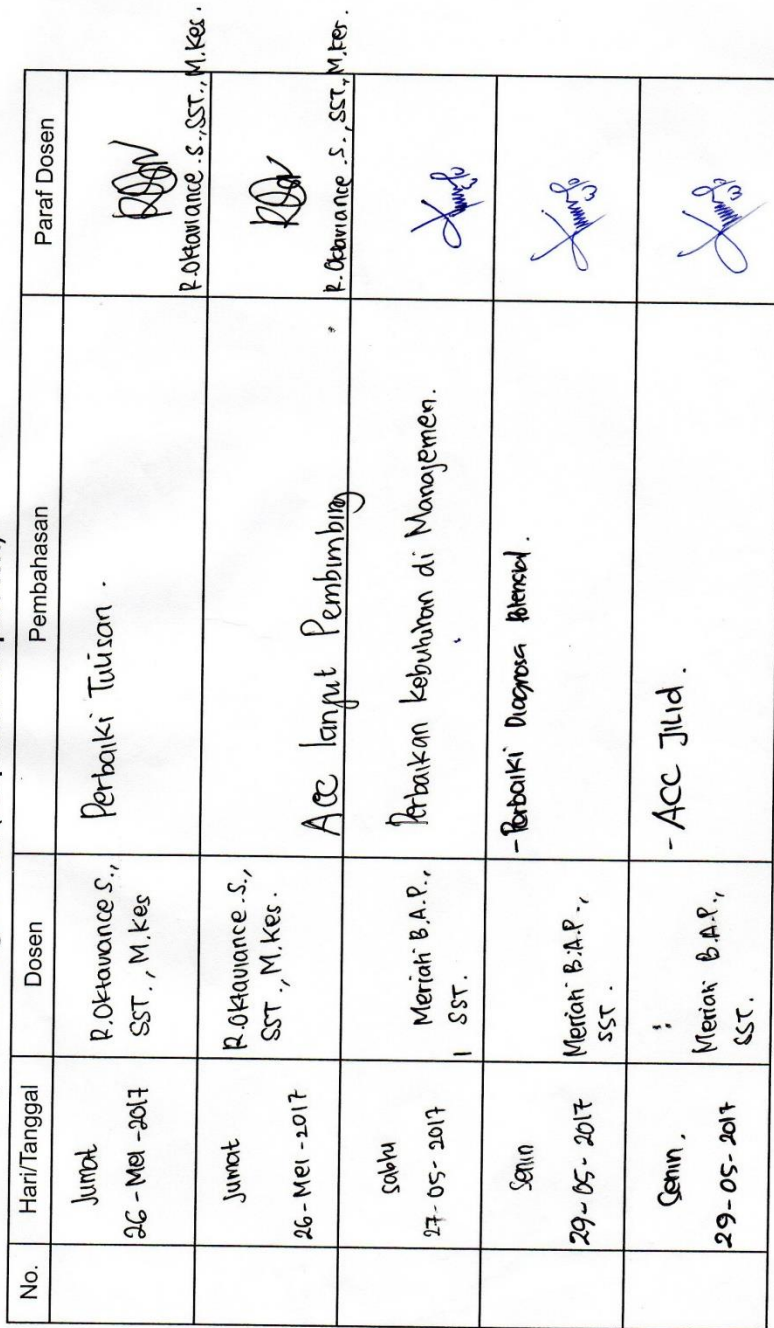 No. Hari/Tanggal Dosen Pembahasan Paraf Dosen
Jumat
26 - Mei - 2017
R.Oktaviance S.,
SST., M.Kes
Perbaiki Tulisan.
R.Oktaviance .S.,SST., M.Kes.
Jumat
26 - Mei - 2017
R.Oktaviance .S.,
SST., M.Kes.
Acc lanjut Pembimbing
R.Oktaviance .S., SST., M.Kes.
Sabtu
27 - 05 - 2017
Meriati B.A.P.,
SST.
Perbaikan Kebutuhan di Manajemen.
Senin
29 - 05 - 2017
Meriati B.A.P.,
SST.
- Perbaiki Diagnosa Potensial.
Senin,
29 - 05 - 2017
Meriati B.A.P.,
SST.
- ACC Jilid.